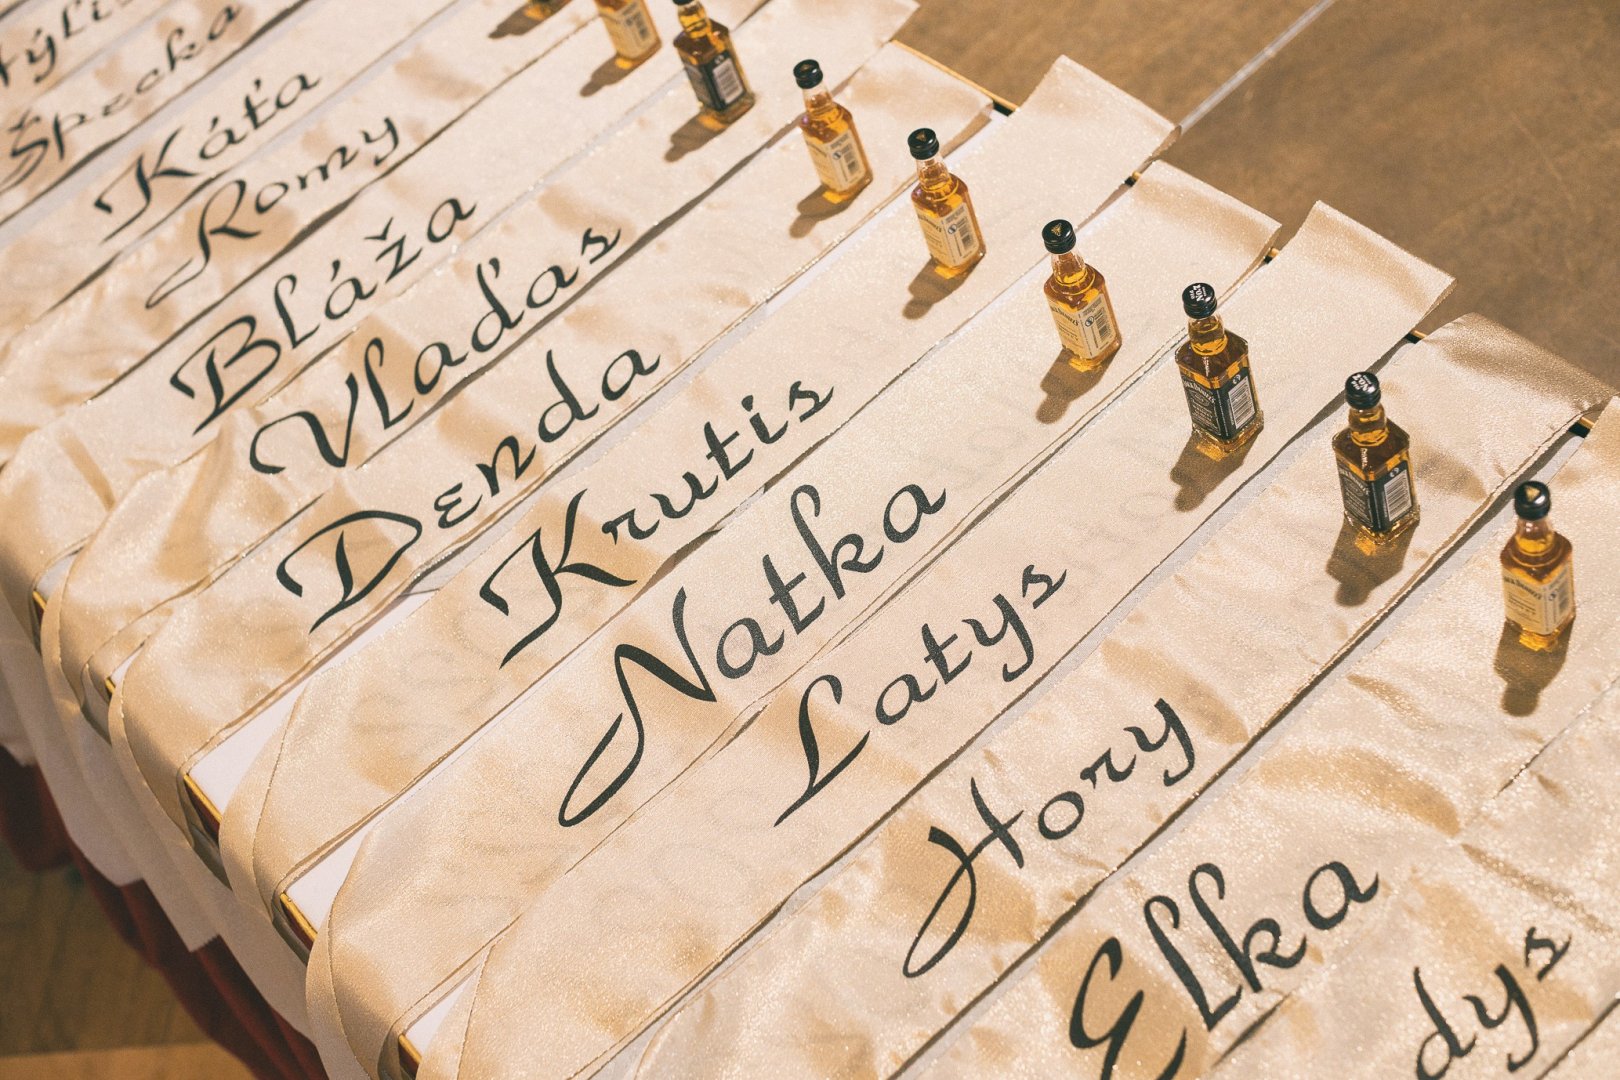 Špecka
Káťa
Romy
Bláža
Vlaďas
Denda
Krutis
Natka
Latys
Hory
Elka
dys